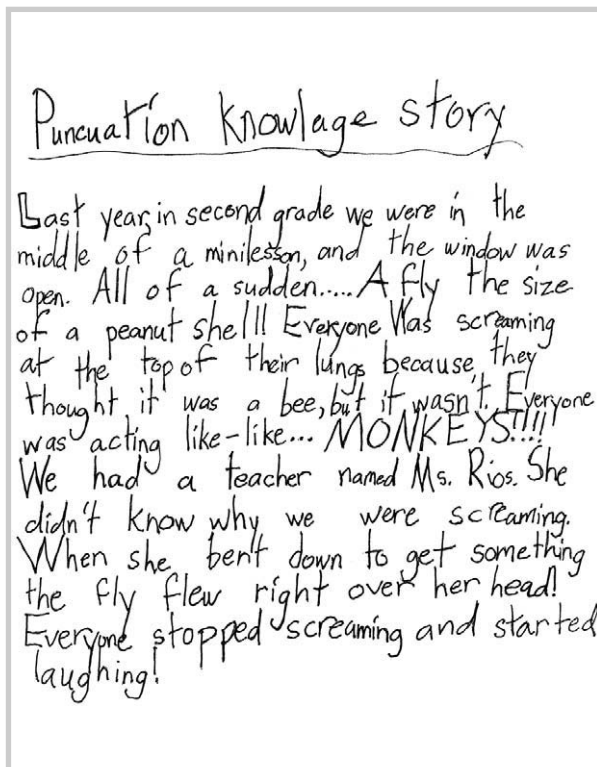 Puncuation Knowlage story
Last year, in second grade we were in the
middle of a minilesson, and the window was
open. All of a sudden..... A fly the size
of a peanut shell!! Everyone Was screaming
at the top of their lungs because they
thought it was a bee, but it wasn't. Everyone
was acting like-like... MONKEYS!!!!
We had a teacher named Ms. Rios. She
didn't know why we were screaming.
When she bent down to get something
the fly flew right over her head!
Everyone stopped screaming and started
laughing!